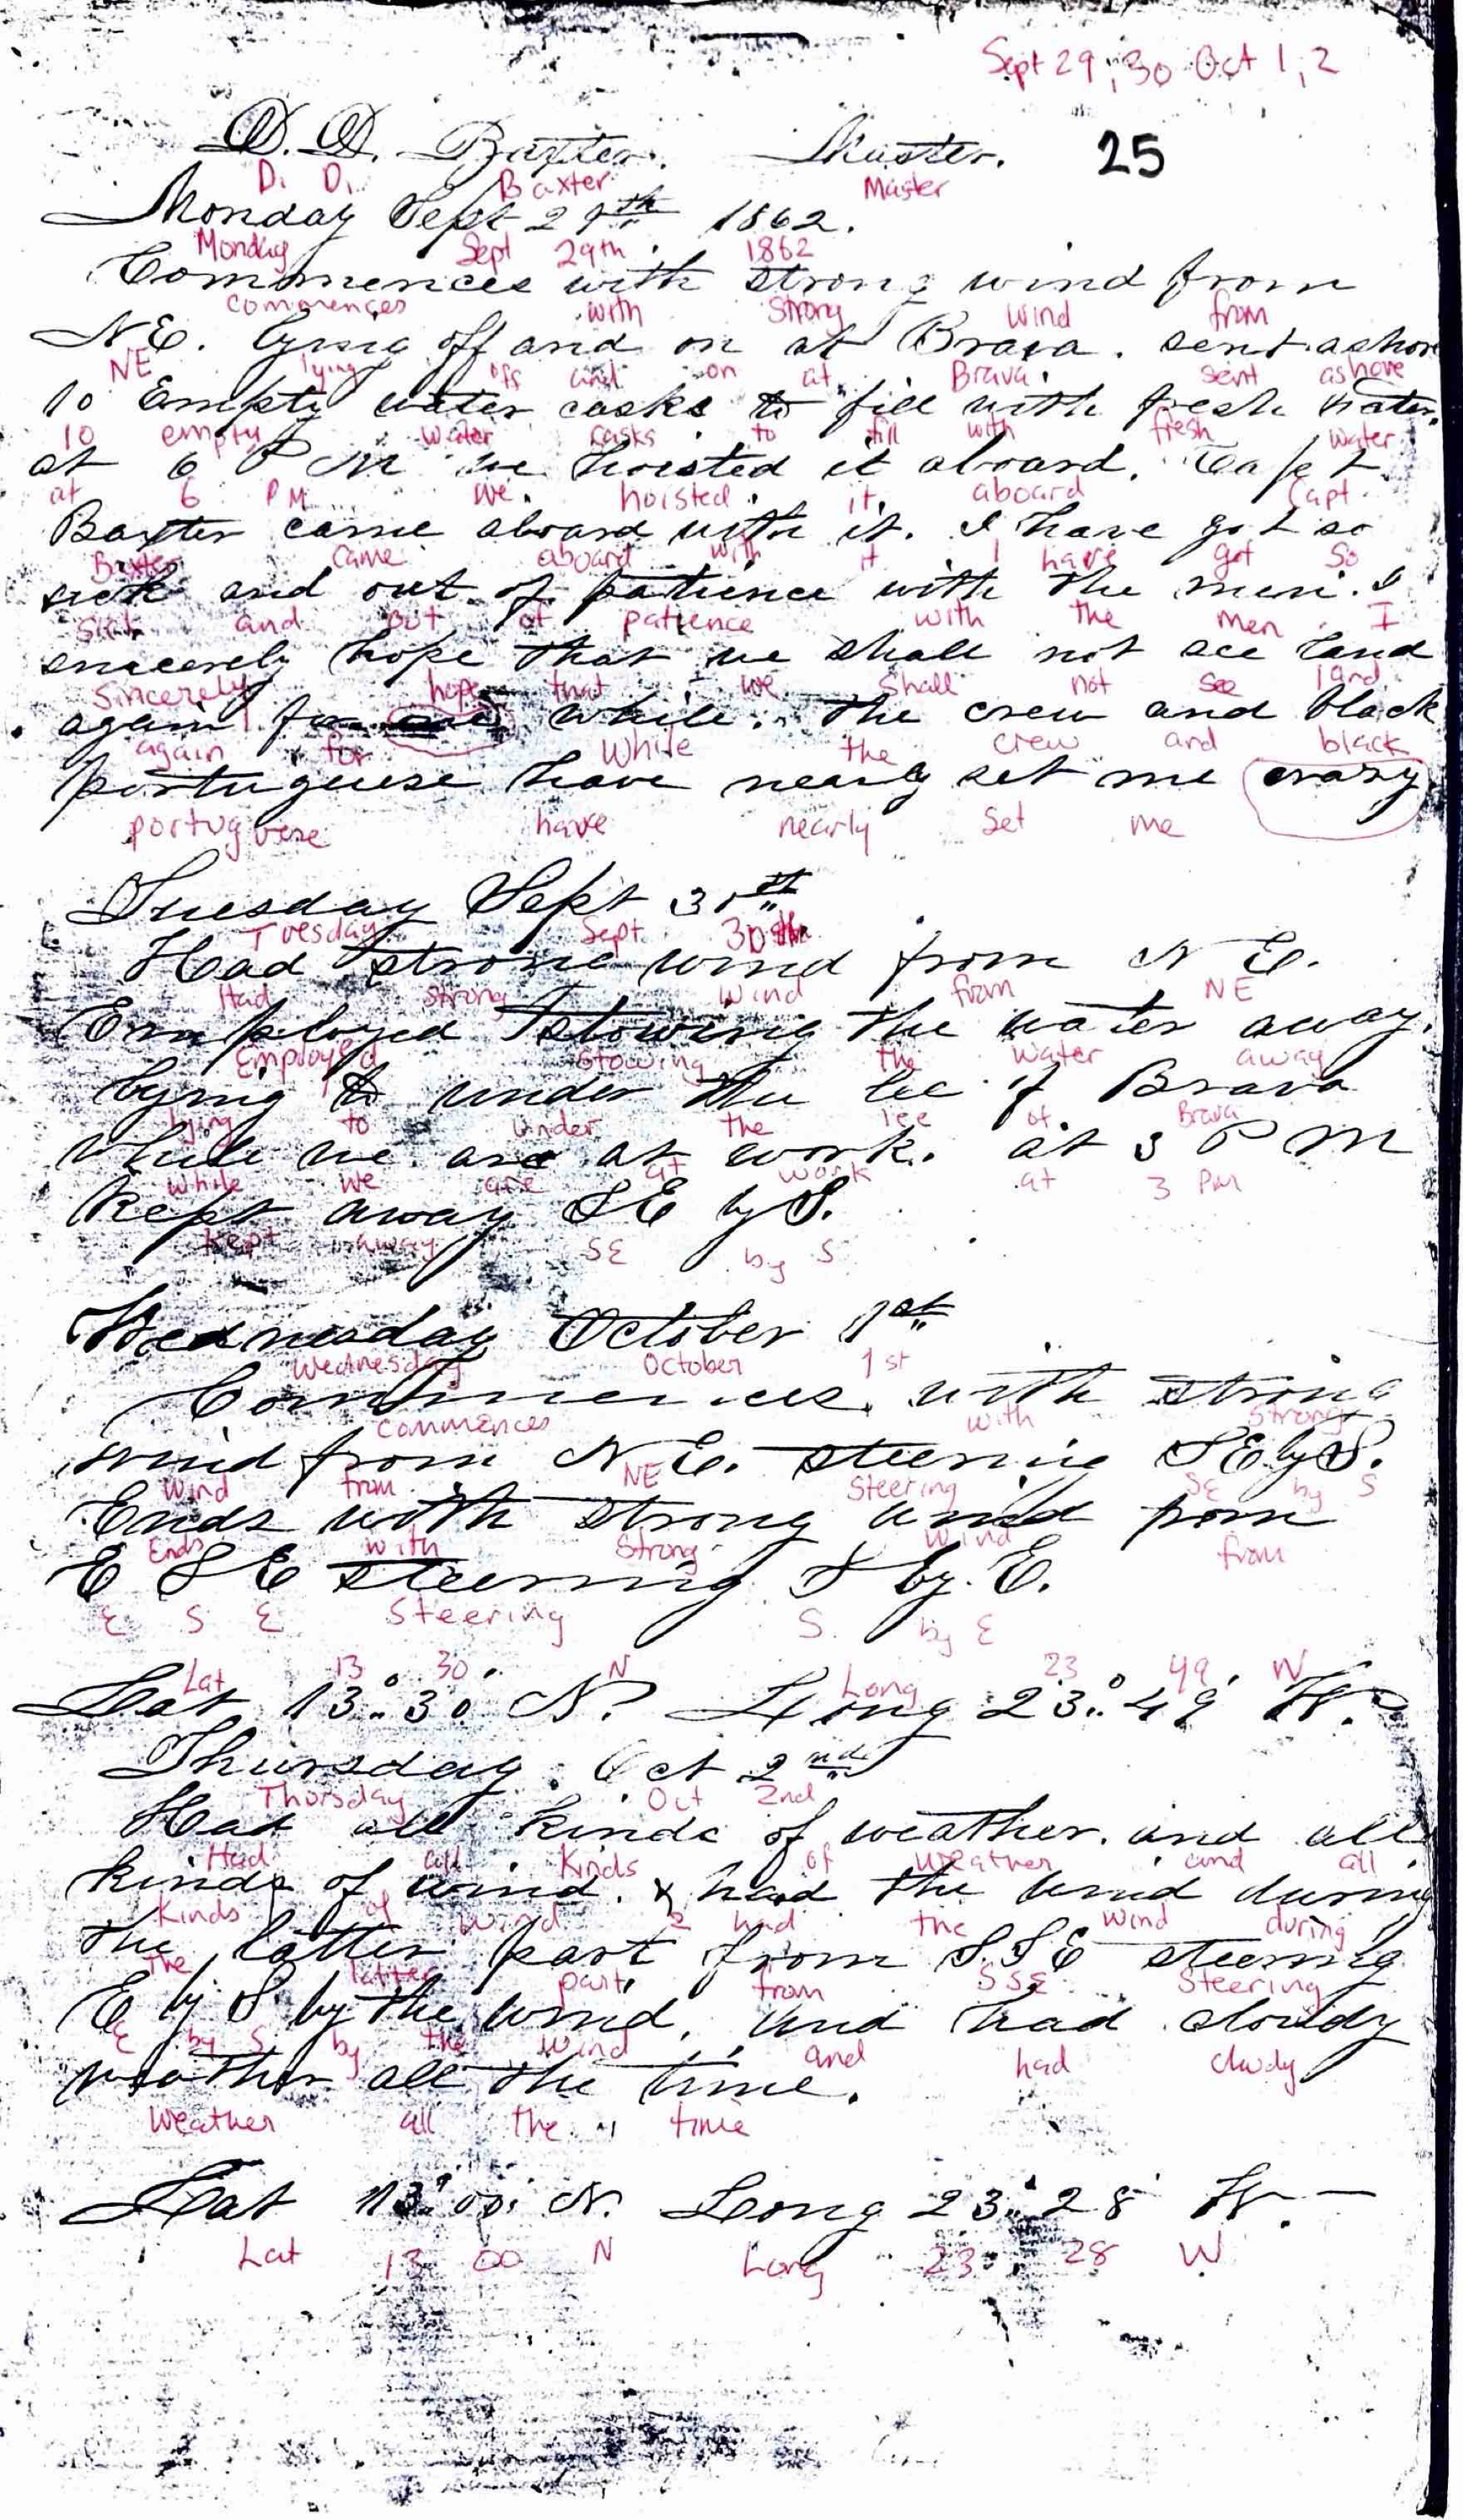 Sept 29, 30 Oct 1, 2
D. D. Baxter. Master. 25
D. D. Baxter Master
Monday Sept 29th 1862.
Monday Sept 29th 1862
Commences with strong wind from
commences with strong wind from
N E. lying off and on at Brava. sent ashore
NE lying off and on at Brava sent ashore
10 Empty water casks to fill with fresh water.
10 empty water casks to fill with fresh water
at 6 P M we hoisted it aboard. Capt
at 6 PM we hoisted it aboard Capt
Baxter came aboard with it. I have got so
Baxter came aboard with it I have got so
sick and out of patience with the men. I
sick and out of patience with the men I
sincerely hope that we shall not see land
sincerely hope that we shall not see land
again for while. The crew and black
again for while the crew and black
portuguese have nearly set me crazy
portuguese have nearly set me
Tuesday Sept 30th
Tuesday Sept 30th
Had strong wind from N E.
Had strong wind from NE
Employed stowing the water away.
Employed stowing the water away
lying to under the lee of Brava
lying to under the lee of Brava
while we are at work. at 3 P M
while we are at work at 3 PM
kept away S E by S.
kept away SE by S
Wednesday October 1st
Wednesday October 1st
Commences with strong
commences with strong
wind from N E. steering S E by S.
wind from NE steering SE by S
Ends with strong wind from
Ends with strong wind from
E S E steering S by E.
E S E steering S by E
Lat 13° 30' N Long 23° 49' W
Lat 13° 30 N. Long 23° 49 W.
Thursday. Oct 2nd
Thursday Oct 2nd
Had all kinds of weather. and all
Had all kinds of weather and all
kinds of wind. & had the wind during
kinds of wind & had the wind during
the latter part from S. S E steering
the latter part from SSE steering
E by S by the wind. and had cloudy
E by S by the wind and had cloudy
weather all the time.
weather all the time
Lat 13° 00' N. Long 23° 28' W.
Lat 13 00 N Long 23 28 W